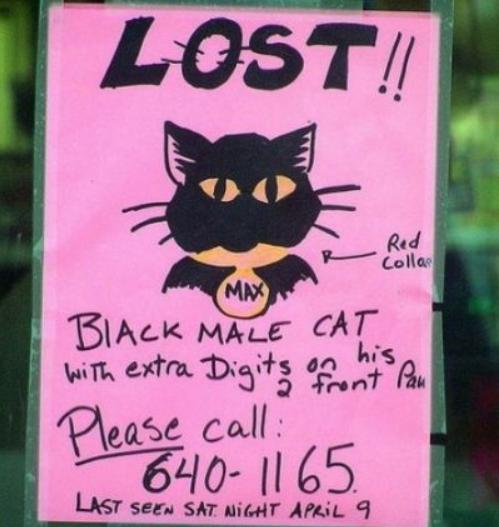 LOST!!
Red
Collar
MAX
BLACK MALE CAT
with extra Digits on his
2 front Paw
Please call:
640-1165.
LAST SEEN SAT. NIGHT APRIL 9